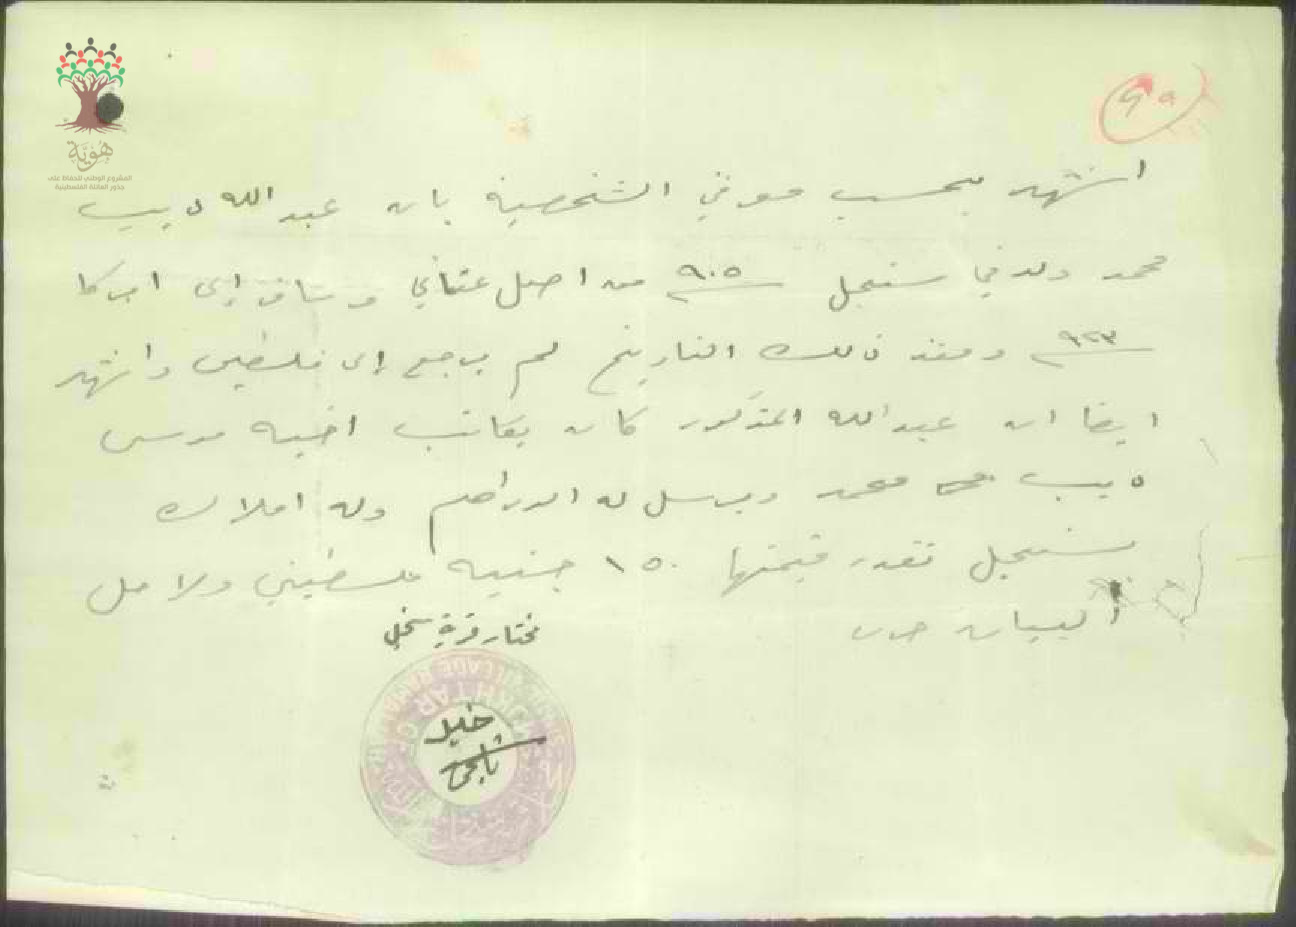 هُوِيَّة
المشروع الوطني للحفاظ على
جذور العائلة الفلسطينية
اشهد بحسب معرفتي الشخصية بان عبد الله ذيب
محمد ولد في سنجل ٩٠٥ من اصل عثماني وسافر إلى امركا
٩٢٣ ومنذ ذالك التاريخ لم يرجع إلى فلسطين واشهد
ايضا ان عبد الله المذكور كان يكاتب اخيه موسى
ذيب محمد ويرسل له الدراهم وله املاك
بسنجل تقدر قيمتها ١٥٠ جنيه فلسطيني ولاجل
البيان حرر
مختار قرية سنجل
MUKHTAR OF
خليل